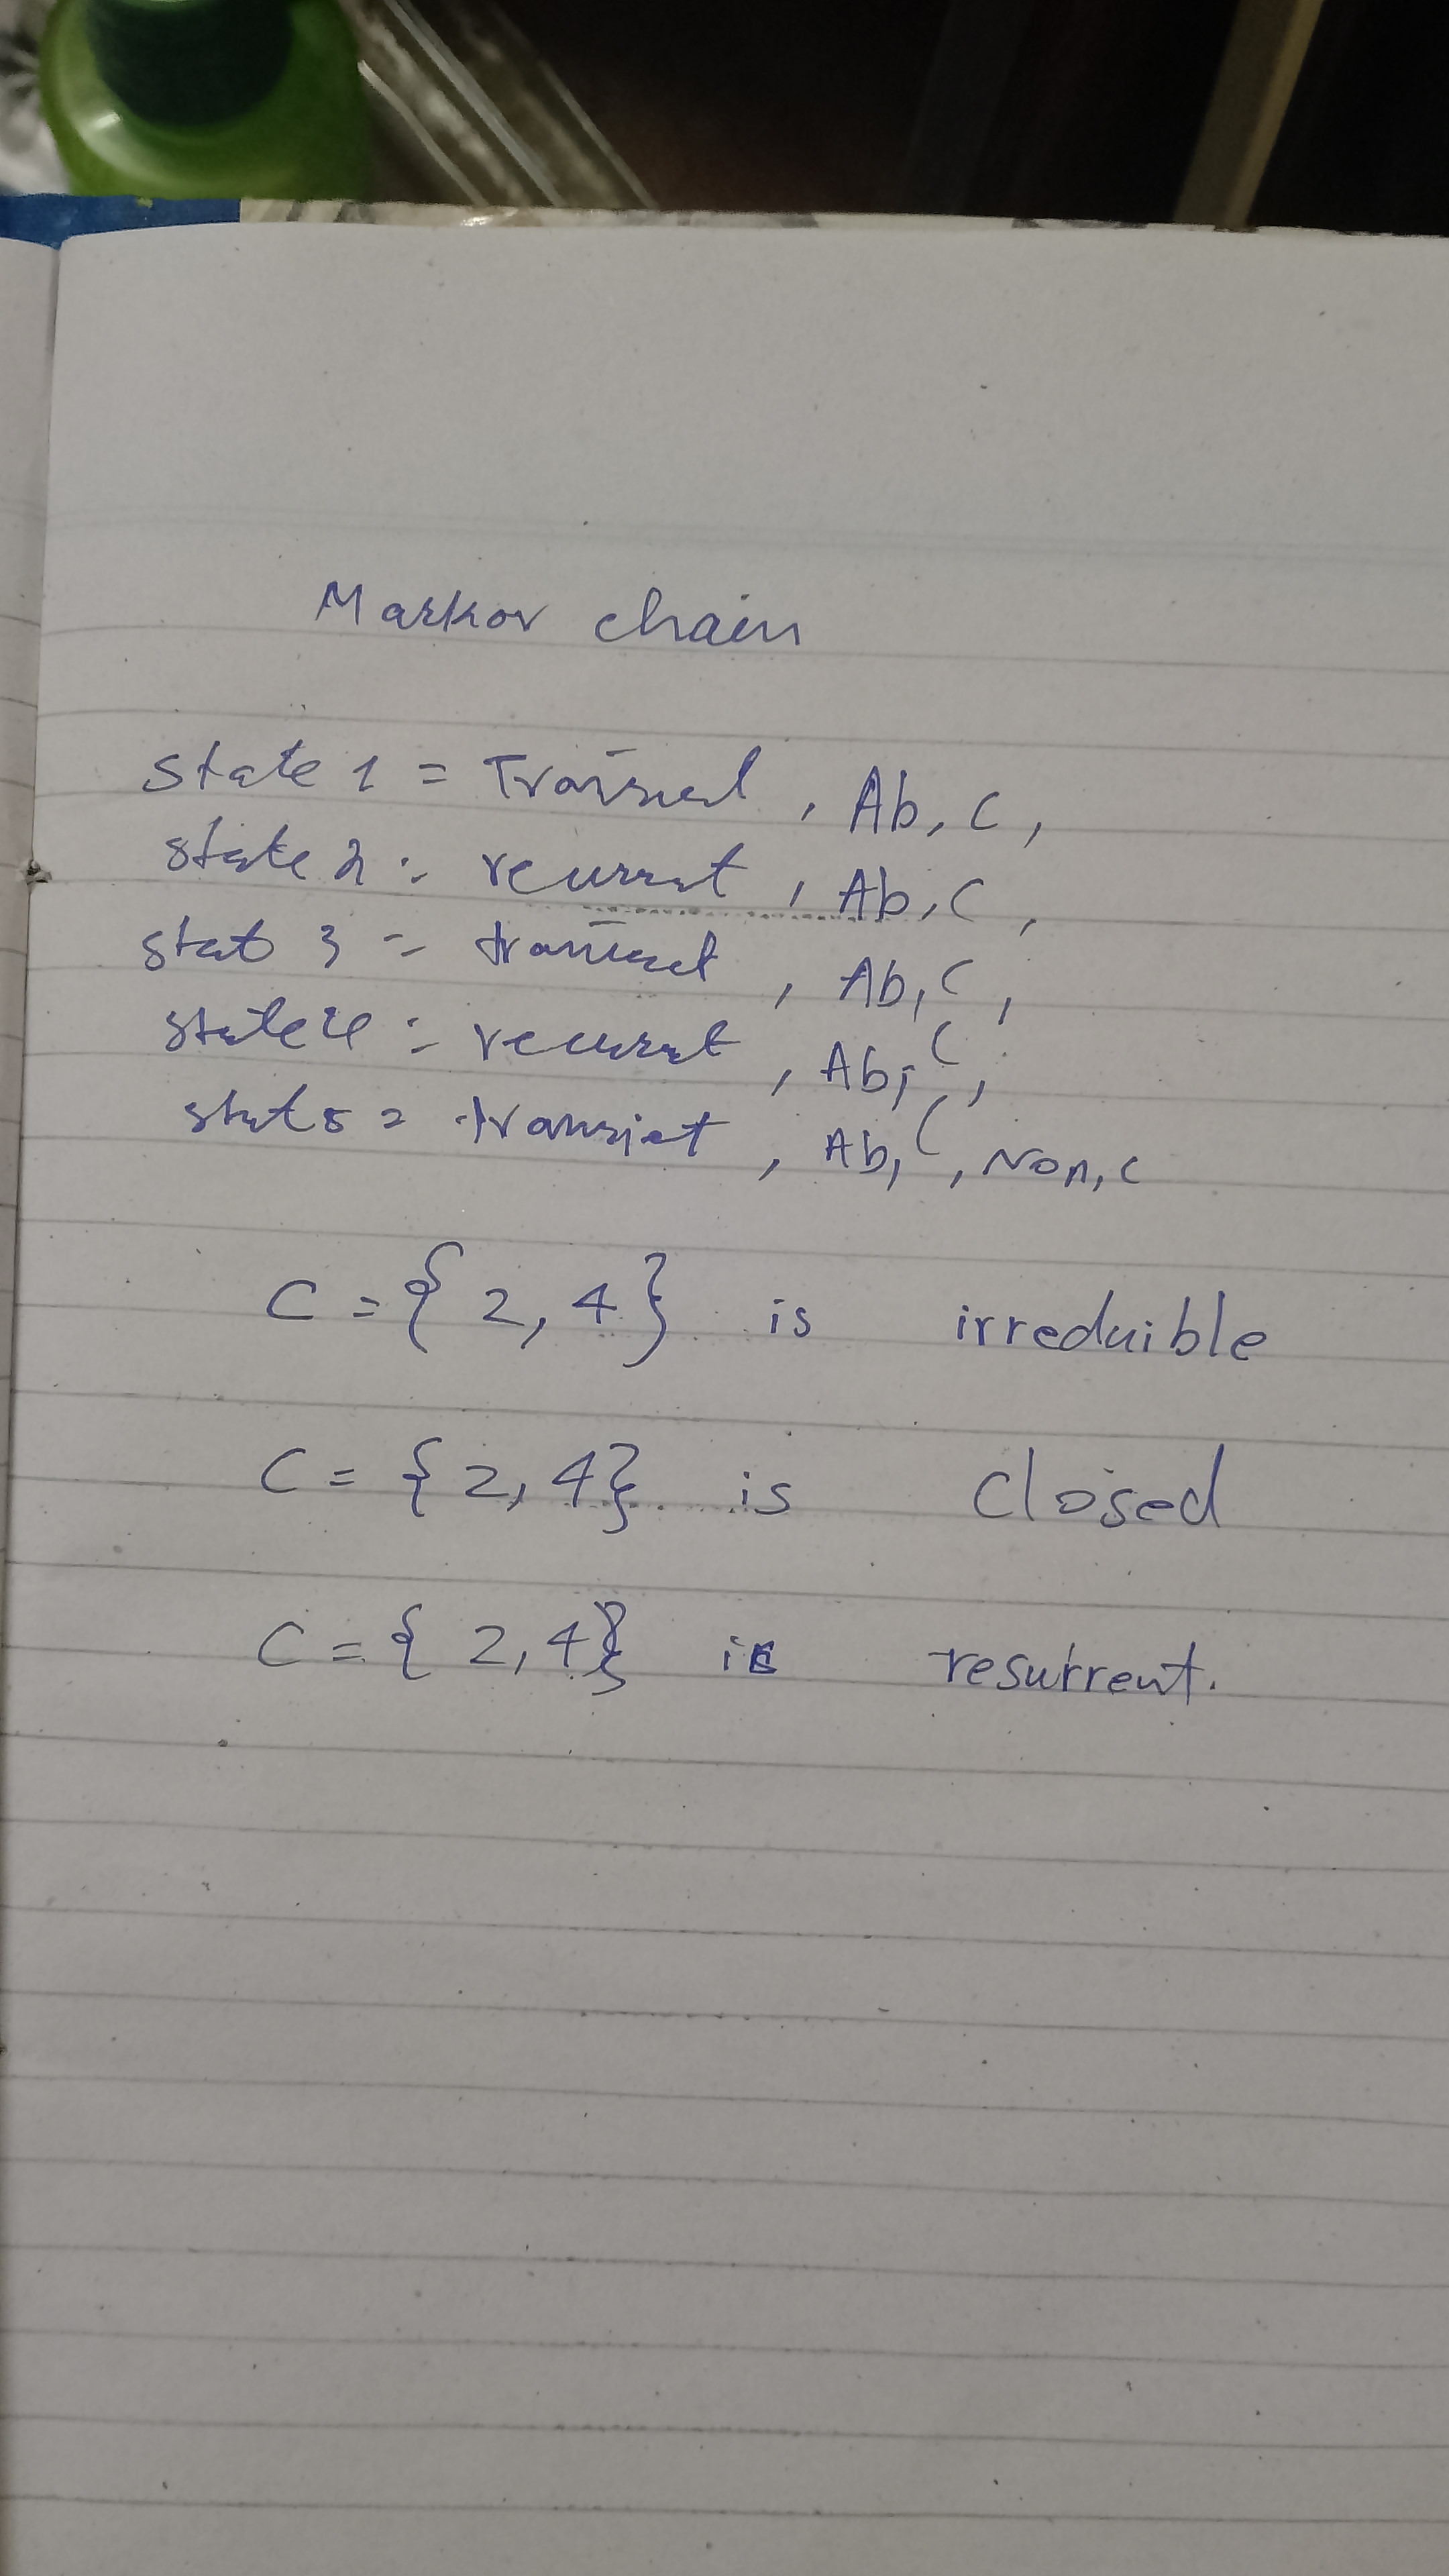 Markov chain
state 1 = Transient, Ab, C,
state 2 = recurrent, Ab, C,
stat 3 = transient, Ab, C,
state 4 = recurrent, Ab, C,
stat 5 = transient, Ab, C, Non, C
C = { 2, 4 } is irreduible
C = { 2, 4 } is Closed
C = { 2, 4 } is resurrent.